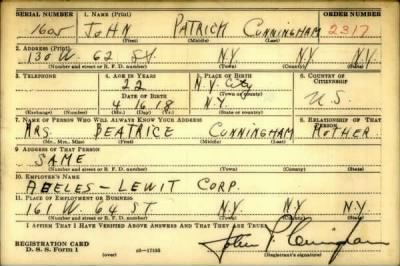 SERIAL NUMBER 1. NAME (Print) ORDER NUMBER
1605 JOHN PATRICK CUNNINGHAM 2317
(First) (Middle) (Last)
2. ADDRESS (Print)
130 W. 62 ST N.Y. N.Y. N.Y.
(Number and street or R. F. D. number) (Town) (County) (State)
3. TELEPHONE 4. AGE IN YEARS 5. PLACE OF BIRTH 6. COUNTRY OF CITIZENSHIP
22 N.Y. City
(Town or county)
DATE OF BIRTH
4 16 18 N.Y. U.S.
(Exchange) (Number) (Mo.) (Day) (Yr.) (State or country)
7. NAME OF PERSON WHO WILL ALWAYS KNOW YOUR ADDRESS 8. RELATIONSHIP OF THAT PERSON
MRS. BEATRICE CUNNINGHAM MOTHER
(Mr., Mrs., Miss) (First) (Middle) (Last)
9. ADDRESS OF THAT PERSON
SAME
(Number and street or R. F. D. number) (Town) (County) (State)
10. EMPLOYER'S NAME
ABELES - LEWIT CORP.
11. PLACE OF EMPLOYMENT OR BUSINESS
161 W. 64 ST N.Y. N.Y. N.Y.
(Number and street or R. F. D. number) (Town) (County) (State)
I AFFIRM THAT I HAVE VERIFIED ABOVE ANSWERS AND THAT THEY ARE TRUE.
REGISTRATION CARD
D. S. S. Form 1 (over) 16-17105 John P. Cunningham
(Registrant's signature)